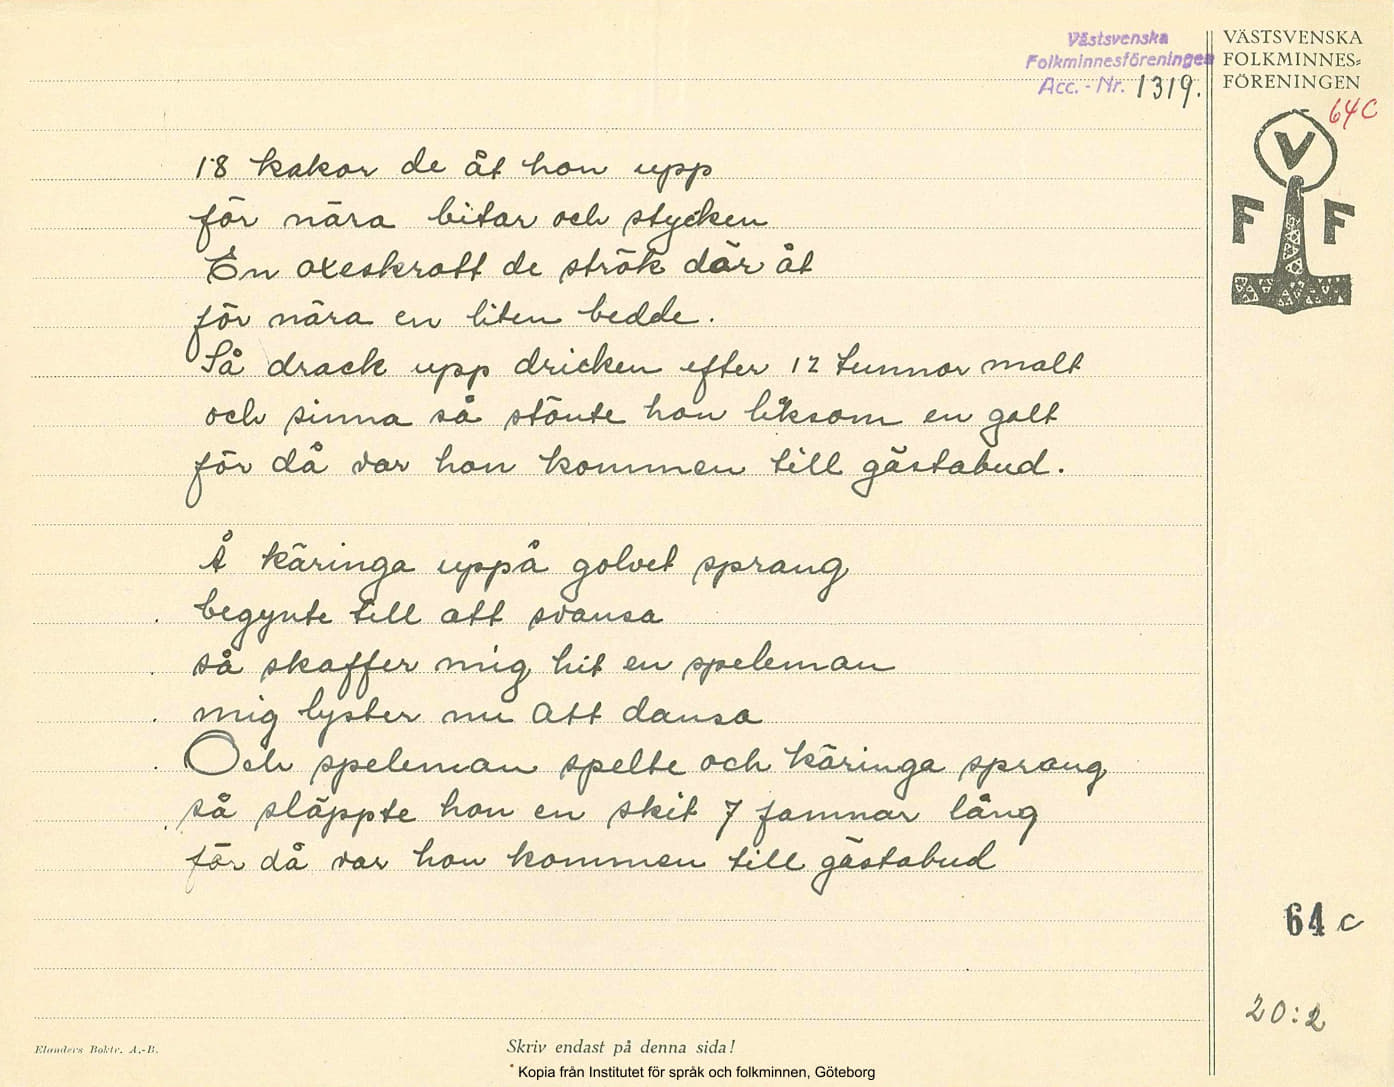 Västsvenska
Folkminnesföreningen
Acc.-Nr. 1319.
VÄSTSVENSKA
FOLKMINNES=
FÖRENINGEN
64C
V
F F
18 kakor de åt hon upp
för nära bitar och stycken
En oxeskrott de strök där åt
för nära en liten bedde.
Så drack upp dricken efter 12 tunnor malt
och sinna så stönte hon liksom en galt
för då var hon kommen till gästabud.
Å käringa uppå golvet sprang
begynte till att svansa
så skaffer mig hit en speleman
mig lyster nu att dansa
Och speleman spelte och käringa sprang
så släppte hon en skit 7 famnar lång
för då var hon kommen till gästabud
64 c
20:2
Elanders Boktr. A.-B.
Skriv endast på denna sida!
Kopia från Institutet för språk och folkminnen, Göteborg